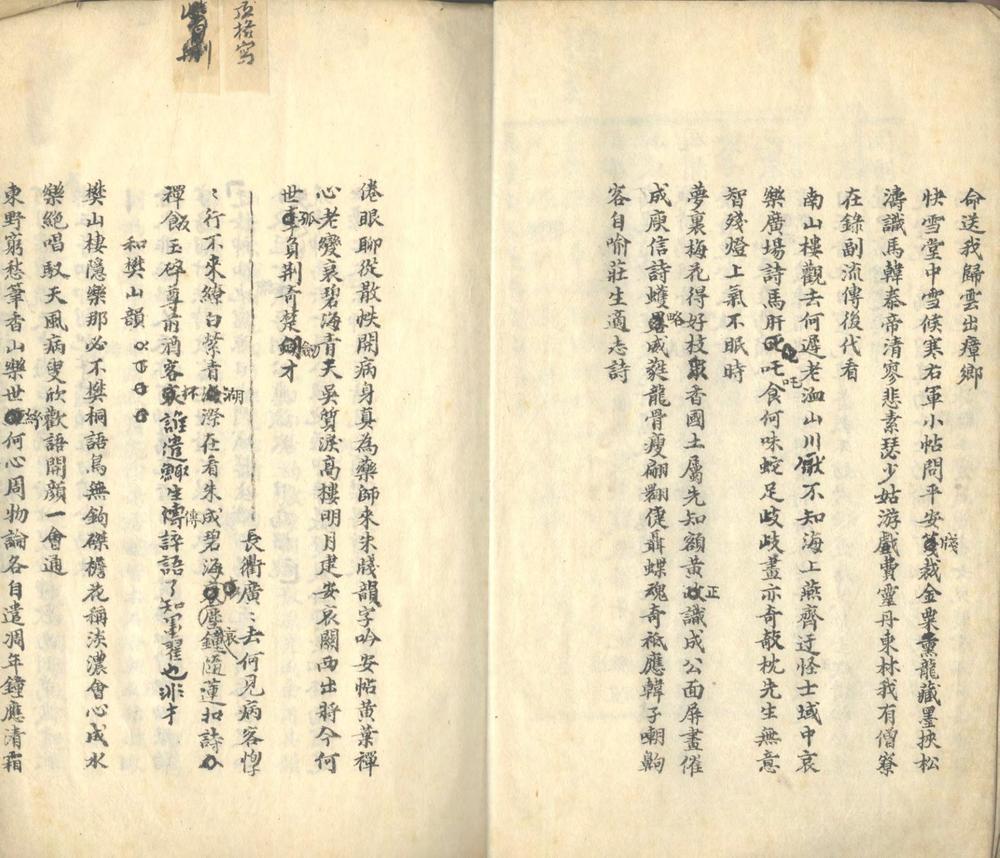 命送我歸雲出瘴鄉
快雪堂中雪候寒右軍小帖問平安牋裁金粟薰龍藏墨挾松
濤識馬韓泰帝清寥悲素瑟少姑游戲費靈丹東林我有僧寮
在錄副流傳後代看
南山樓觀去何遲老洫山川厭不知海上燕齊迂怪士域中哀
樂廣場詩馬肝吒食何味蛇足歧歧畫亦奇敧枕先生無意
智殘燈上氣不眠時
夢裏梅花得好枝香國土屬先知額黃正識成公面屏畫催
成庾信詩蠖略威蕤龍骨瘦翩翾僊聶蝶魂奇祗應韓子嘲齁
客自喻莊生適志詩
頂格寫
倦眼聊從散帙開病身真為藥師來朱牋韻字吟安帖黃葉禪
心老變哀碧海青天吳質淚高樓明月建安哀關西出將今何
世孤負荆奇楚劒才
長衢廣〻去何見病客惸
〻行不來繚白縈青湖澨在看朱成碧海鐘隨蓮扣詩
禪飯玉碎尊前酒客懷誰遣鯫生傳評語了知軍翟也非才
和樊山韻
樊山棲隱樂那必不樊桐語鳥無鉤磔檐花稱淡濃會心成水
樂絕唱馭天風病叟欣歡語開顏一會通
東野窮愁筆香山樂世何心周物論各自遣凋年鐘應清霜